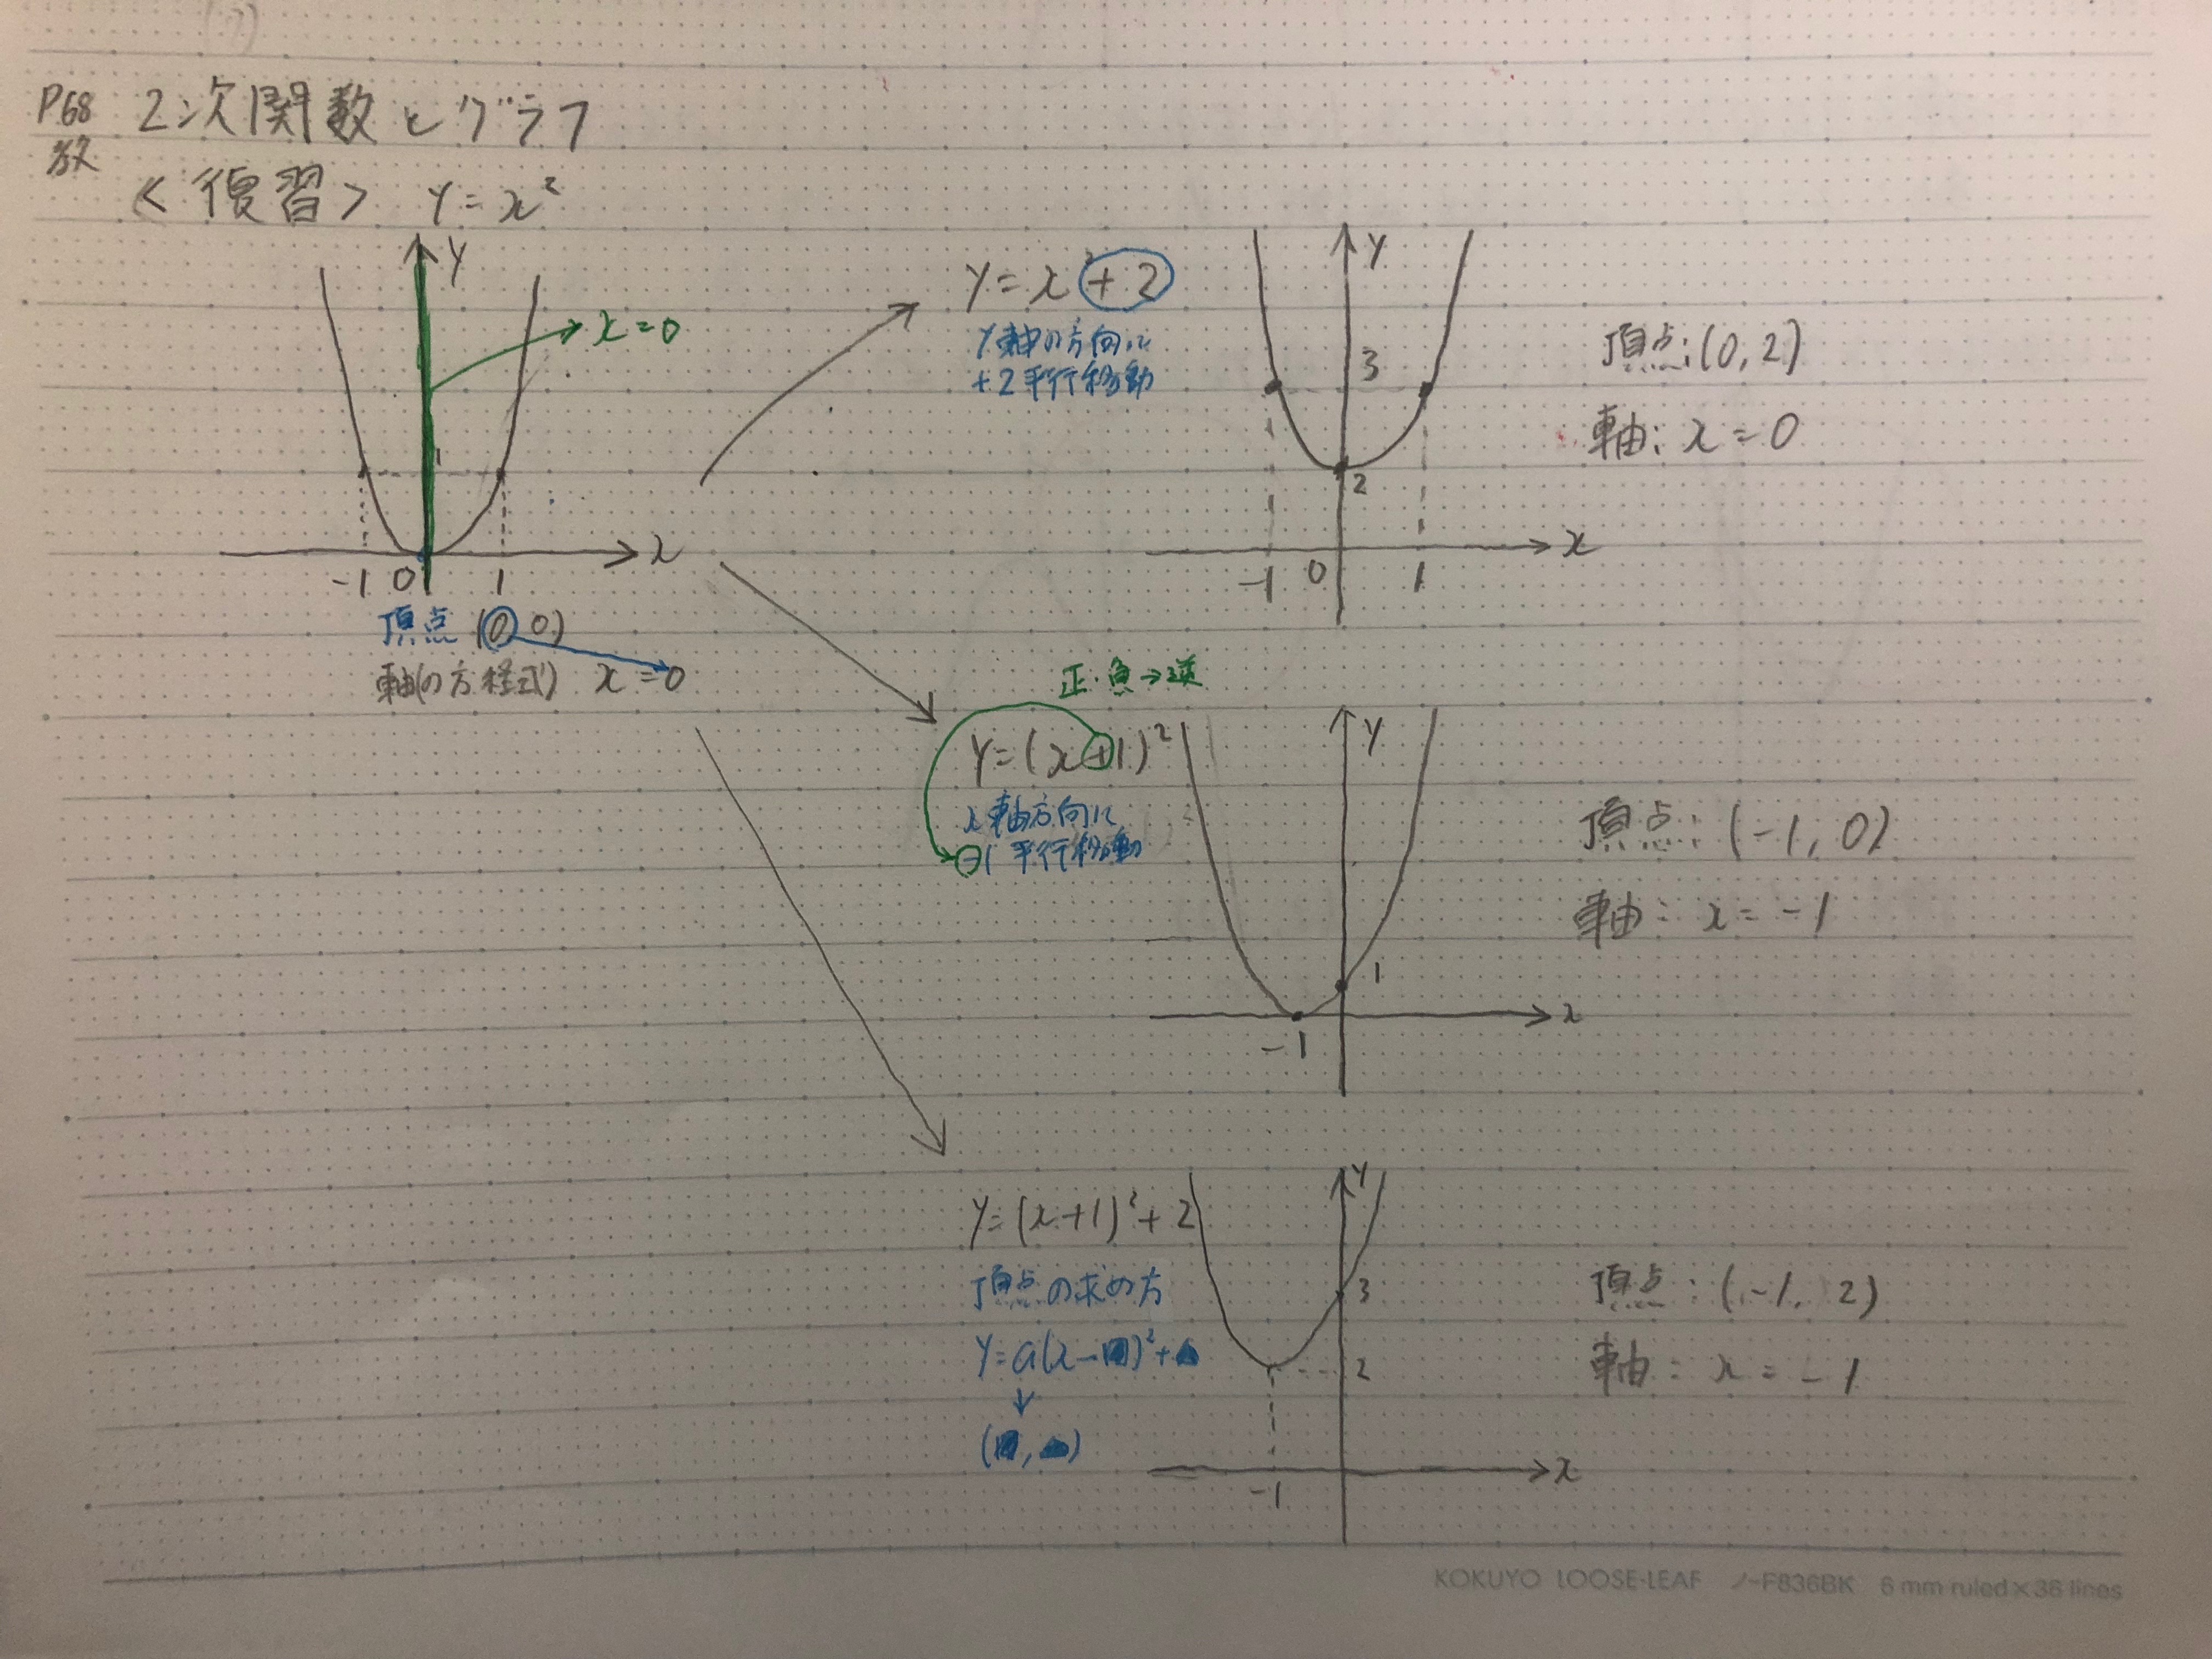 P68 2次関数とグラフ
教
<復習> y=x²
y
x=0
1
x
-1 0 1
頂点 (0, 0)
軸(の方程式) x=0
y=x²+2
y軸の方向に
+2平行移動
y
3
2
x
-1 0 1
頂点:(0, 2)
軸: x=0
正・負→逆
y=(x+1)²
x軸方向に
-1 平行移動
y
1
x
-1
頂点: (-1, 0)
軸: x=-1
y=(x+1)²+2
頂点の求め方
y=a(x-■)²+▲
↓
(■, ▲)
y
3
2
x
-1
頂点: (-1, 2)
軸: x=-1
KOKUYO LOOSE-LEAF ノ-F836BK 6 mm ruled×36 lines